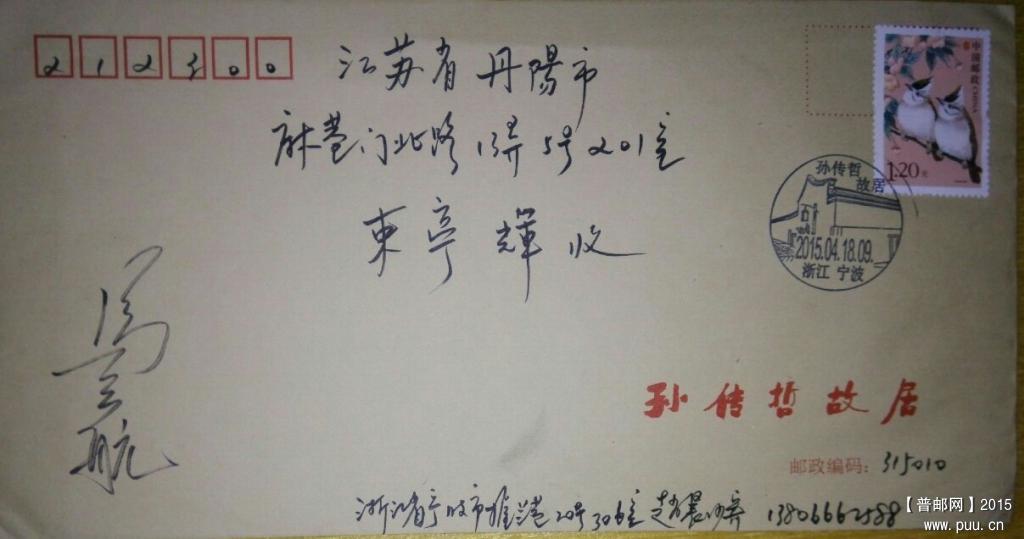 212300
江苏省丹陽市
麻巷门北路13弄5号201室
束亭輝收
中国邮政 CHINA
1.20元
孙传哲
故居
2015.04.18.09.
浙江 宁波
孙传哲故居
邮政编码：315010
浙江省宁波市 巷20号306室 13806662588
航
【普邮网】2015
www.puu.cn